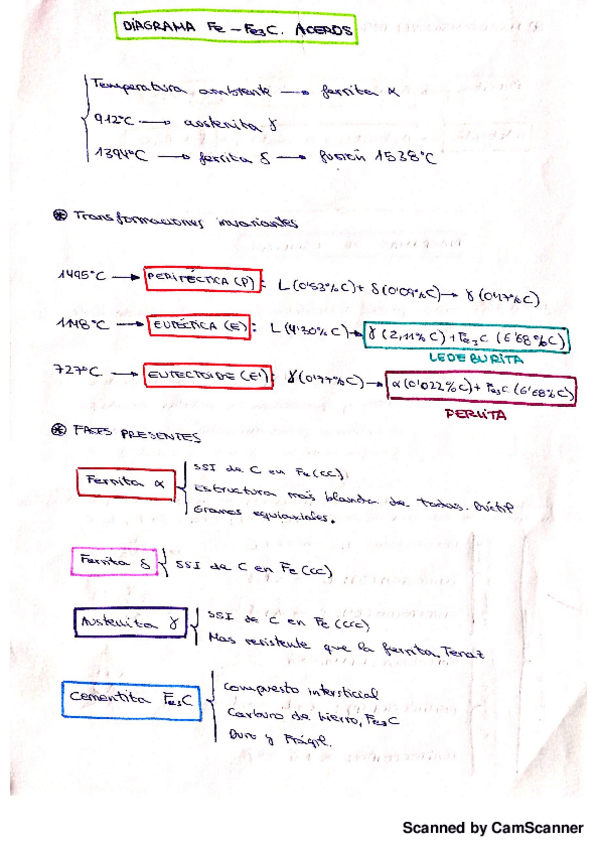 DIAGRAMA Fe - Fe3C. ACEROS
Temperatura ambiente → ferrita α
912°C → austenita γ
1394°C → ferrita δ → fusión 1538°C
⊛ Transformaciones invariantes
1495°C → PERITÉCTICA (P): L (0'53%C) + δ (0'09%C) → γ (0'17%C)
1148°C → EUTÉCTICA (E): L (4'30%C) → γ (2,11%C) + Fe3C (6'68%C)
LEDEBURITA
727°C → EUTECTOIDE (E'): γ (0'77%C) → α (0'022%C) + Fe3C (6'68%C)
PERLITA
⊛ FASES PRESENTES
Ferrita α
SSI de C en Fe (CC)
Estructura más blanda de todas. Dúctil
Granos equiaxiales.
Ferrita δ { SSI de C en Fe (CC)
Austenita γ
SSI de C en Fe (CCC)
Mas resistente que la ferrita. Tenaz
Cementita Fe3C
Compuesto intersticial
Carburo de hierro, Fe3C
Duro y Frágil.
Scanned by CamScanner